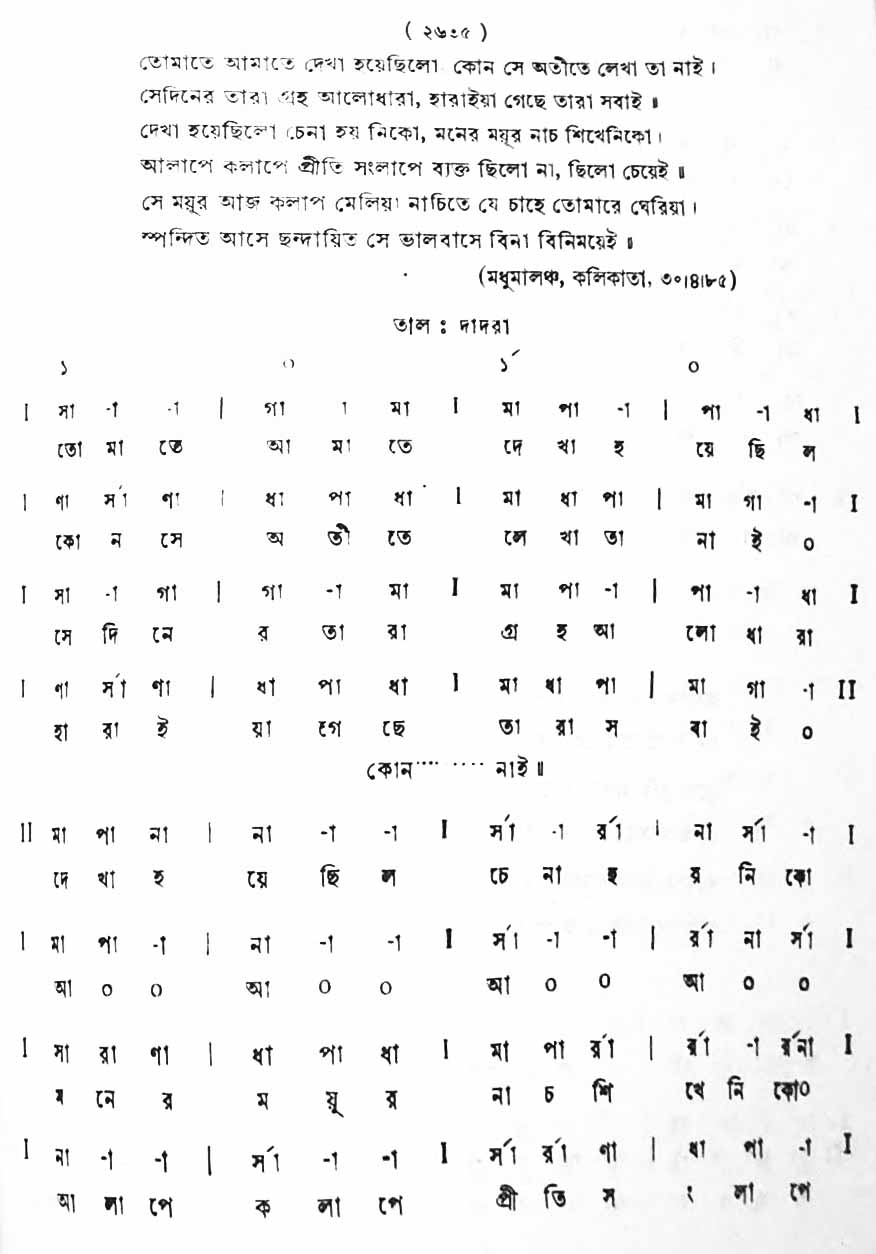 ( ২৬৩৫ )
তোমাতে আমাতে দেখা হয়েছিলো কোন সে অতীতে লেখা তা নাই ।
সেদিনের তারা গ্রহ আলোধারা, হারাইয়া গেছে তারা সবাই ॥
দেখা হয়েছিলো চেনা হয় নিকো, মনের ময়ূর নাচ শিখেনিকো ।
আলাপে কলাপে প্রীতি সংলাপে ব্যক্ত ছিলো না, ছিলো চেয়েই ॥
সে ময়ূর আজ কলাপ মেলিয়া নাচিতে যে চাহে তোমারে ঘেরিয়া ।
স্পন্দিত আসে ছন্দায়িত সে ভালবাসে বিনা বিনিময়েই ॥
(মধুমালঞ্চ, কলিকাতা, ৩০।৪।৮৫)
তাল : দাদরা
১ ০ ১́ ০
I সা -া -া | গা া মা I মা পা -া | পা -া ধা I
তো মা তে আ মা তে দে খা হ য়ে ছি ল
I ণা র্সা ণা | ধা পা ধা I মা ধা পা | মা গা -া I
কো ন সে অ তী তে লে খা তা না ই ০
I সা -া গা | গা -া মা I মা পা -া | পা -া ধা I
সে দি নে র তা রা গ্র হ আ লো ধা রা
I ণা র্সা ণা | ধা পা ধা I মা ধা পা | মা গা -া II
হা রা ই য়া গে ছে তা রা স বা ই ০
কোন ........ নাই ॥
II মা পা না | না -া -া I র্সা -া র্রা | না র্সা -া I
দে খা হ য়ে ছি ল চে না হ য় নি কো
I মা পা -া | না -া -া I র্সা -া -া | র্রা না র্সা I
আ ০ ০ আ ০ ০ আ ০ ০ আ ০ ০
I সা রা ণা | ধা পা ধা I মা পা র্রা | র্রা -া র্রনা I
ম নে র ম য়ূ র না চ শি খে নি কো০
I না -া -া | র্সা -া -া I র্সা র্রা ণা | ধা পা -া I
আ লা পে ক লা পে প্রী তি স ং লা পে